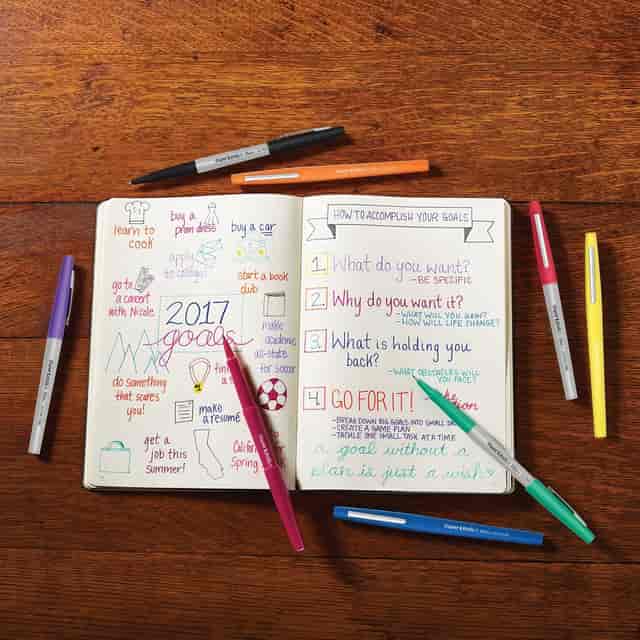 learn to
cook
buy a
prom dress
buy a car
apply
to college!
start a book
club
go to
a concert
with Nicole
2017
goals
make
academic
all-state
for soccer
do something
that scares
you!
make
a resume
get a
job this
Summer!
California
Spring
HOW TO ACCOMPLISH YOUR GOALS
1. What do you want?
- BE SPECIFIC
2. Why do you want it?
- WHAT WILL YOU GAIN?
- HOW WILL LIFE CHANGE?
3. What is holding you
back?
- WHAT OBSTACLES WILL
YOU FACE?
4. GO FOR IT!
- BREAK DOWN BIG GOALS INTO SMALL
- CREATE A GAME PLAN
- TACKLE ONE SMALL TASK AT A TIME
a goal without a
plan is just a wish
Paper Mate
Paper Mate
Paper Mate